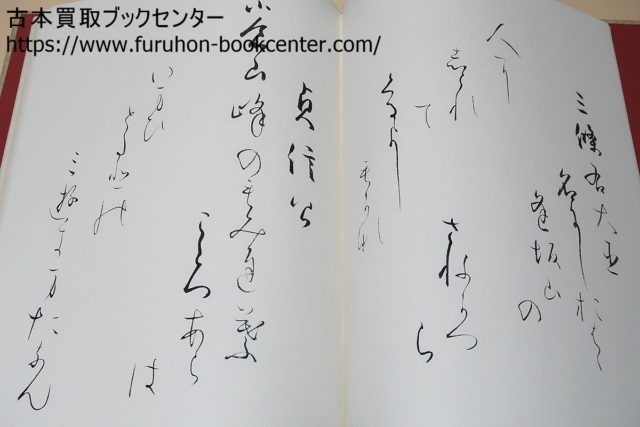 古本買取ブックセンター
https://www.furuhon-bookcenter.com/
三條右大臣
名にしおはゝ
逢坂山の
さねかつ
ら
人に
しられ
て
くるよし
も
貞信公
小倉山峰のもみち葉
こゝろあら
は
いまひ
とたひの
みゆきまたなん